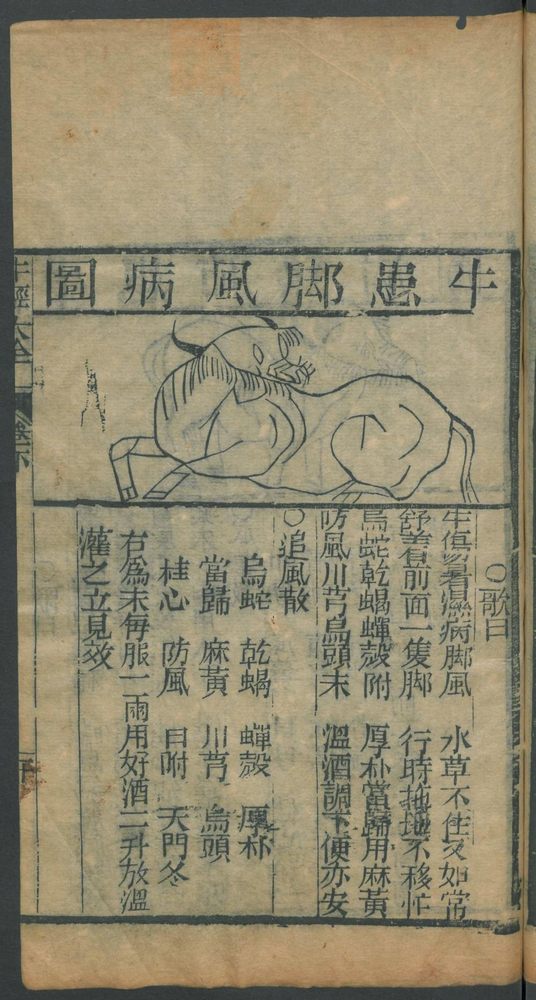 牛患脚風病圖
○歌曰
牛傷暑濕病脚風 水草不住又如常
舒著前面一隻脚 行時拖地不移忙
烏蛇乾蝎蟬殼附 厚朴當歸用麻黃
防風川芎烏頭末 溫酒調下便亦安
○追風散
烏蛇 乾蝎 蟬殼 厚朴
當歸 麻黃 川芎 烏頭
桂心 防風 白附 天門冬
右爲末每服一兩用好酒二升放溫
灌之立見效
牛經大全 卷下